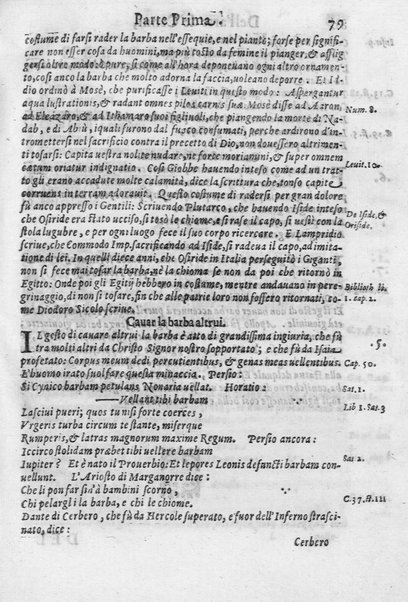 Parte Prima. 79
costume di farsi rader la barba nell'essequie, e nel pianto; forse per signifi
care non esser cosa da huomini, ma più tosto da femine il pianger, & affligg
gersi oltre modo: è pure, si come all'hora deponeuano ogni altro ornamen-
to, cosi anco la barba che molto adorna la faccia, uoleano deporre. Et Id
dio ordinò a Mosè, che purificasse i Leuiti in questo modo: Aspergantur
aqua lustrationis, & radant omnes pilos carnis suæ. Mosè disse ad Aaron,
Num. 8.
ad Eleazaro, & ad Ithamaro suoi figliuoli, che piangendo la morte di Na-
dab, e di Abiù, iquali furono dal fuoco consumati, perche ardirono d'in-
tromettersi nel sacrificio contro il precetto di Dio, non douessero altrimen-
ti tosarsi: Capita uestra nolite nudare, ne forte moriamini, & super omnem
cætum oriatur indignatio. Cosi Giobbe hauendo inteso come ad un trat-
Leuit. 10.
to gli erano accadute molte calamità, dice la scrittura che, tonso capite
corruens in terram adorauit. Questo costume di radersi per gran dolore
fù anco appresso i Gentili: Scriuendo Plutarco, che hauendo Iside inteso
che Osiride era stato ucciso, si tosò le chiome, e si rase il capo, si uestì con la
De Iside, &
Osiride.
stola lugubre, e per ogni luogo fece il suo corpo ricercare. E Lampridio
scriue, che Commodo Imp. sacrificando ad Iside, si radeua il capo, ad imita-
tione di lei. In quelli diece anni, che Osiride in Italia perseguitò i Giganti,
non si fece mai tosar la barba, nè la chioma se non da poi che ritornò in
Egitto: Onde poi gli Egittij hebbero in costume, mentre andauano in pere-
Biblioth li.
1. cap. 2.
grinaggio, di non si tosare, fin che alle patrie loro non fossero ritornati, co-
me Diodoro Sicolo scriue.
Cauar la barba altrui.
IL gesto di cauare altrui la barba è atto di grandissima ingiuria, che fù
tra molti altri da Christo Signor nostro sopportato; e che fù da Isaia
profetato: Corpus meum dedi percutientibus, & genas meas uellentibus.
Cap. 50.
E l'huomo irato suol fare questa minaccia. Persio:
Si Cynico barbam petulans Nonaria uellat. Horatio:
Sat. 1.
—Vellant tibi barbam
Lib 1. Sat. 3
Lasciui pueri; quos tu nisi fuste coerces,
Vrgeris turba circum te stante, miserque
Rumperis, & latras magnorum maxime Regum. Persio ancora:
Iccirco stolidam præbet tibi uellere barbam
Sat 2.
Iupiter? Et è nato il Prouerbio: Et lepores Leonis defuncti barbam con-
uellunt. L'Ariosto di Marganorre dice:
Che li pon far sin'à bambini scorno,
C. 37. st. 111
Chi pelargli la barba, e chi le chiome.
Dante di Cerbero, che fù da Hercole superato, e fuor dell'Inferno strasci-
nato, dice:
Cerbero